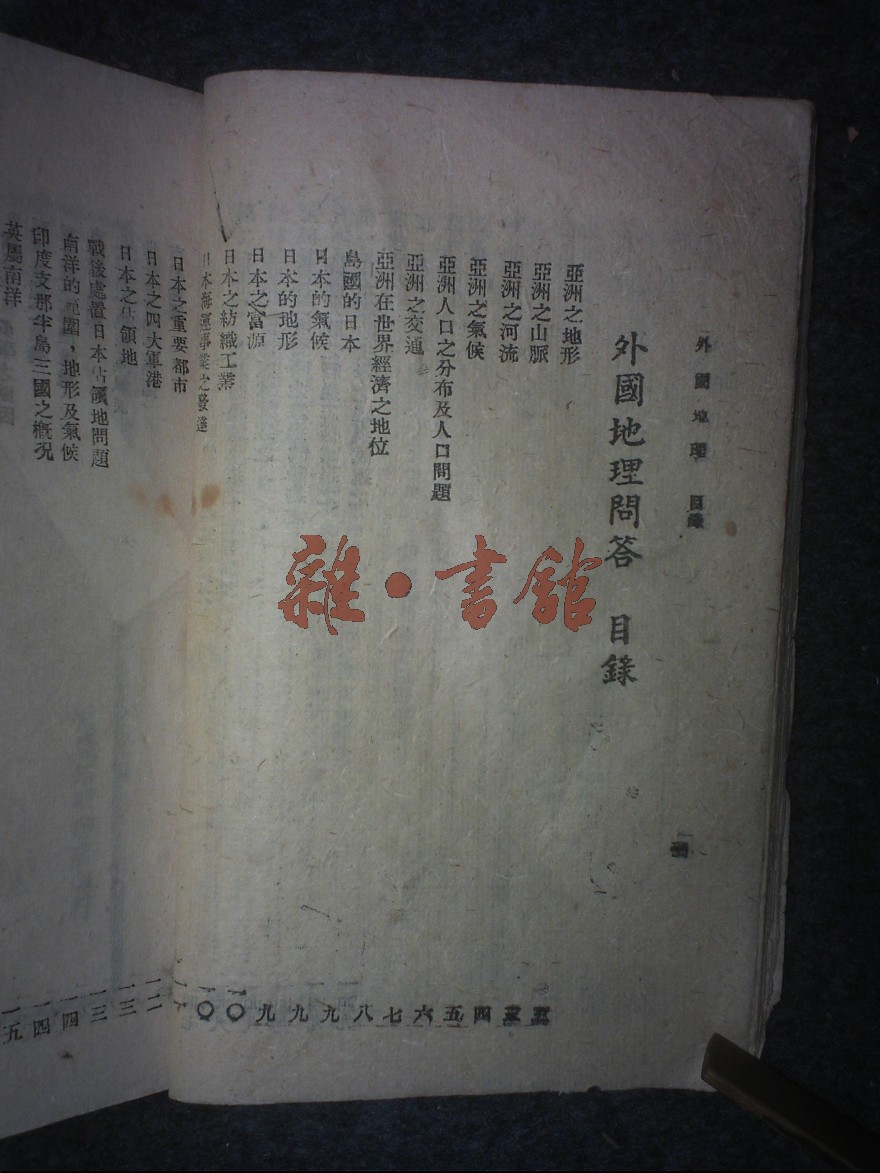 外國地理 目錄
外國地理問答 目錄
亞洲之地形
亞洲之山脈 三
亞洲之河流 四
亞洲之氣候 五
亞洲人口之分布及人口問題 六
亞洲之交通 七
亞洲在世界經濟之地位 八
島國的日本 九
日本的氣候 九
日本的地形 九
日本之富源 九
日本之紡織工業 一〇
日本海運事業之發達 一〇
日本之重要都市
日本之四大軍港 一二
日本之佔領地 一三
戰後處置日本佔領地問題 一三
南洋的範圍，地形及氣候 一四
印度支那半島三國之概況 一四
英屬南洋 一五
雜·書館